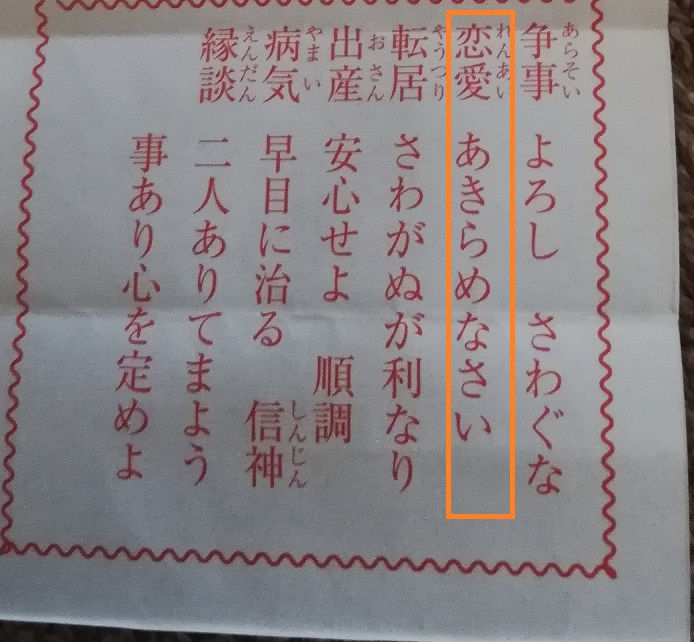 争事 よろし さわぐな
あらそい
恋愛 あきらめなさい
れんあい
転居 さわがぬが利なり
やうつり
出産 安心せよ 順調
おさん
病気 早目に治る 信神
やまい しんじん
縁談 二人ありてまよう
えんだん
事あり心を定めよ